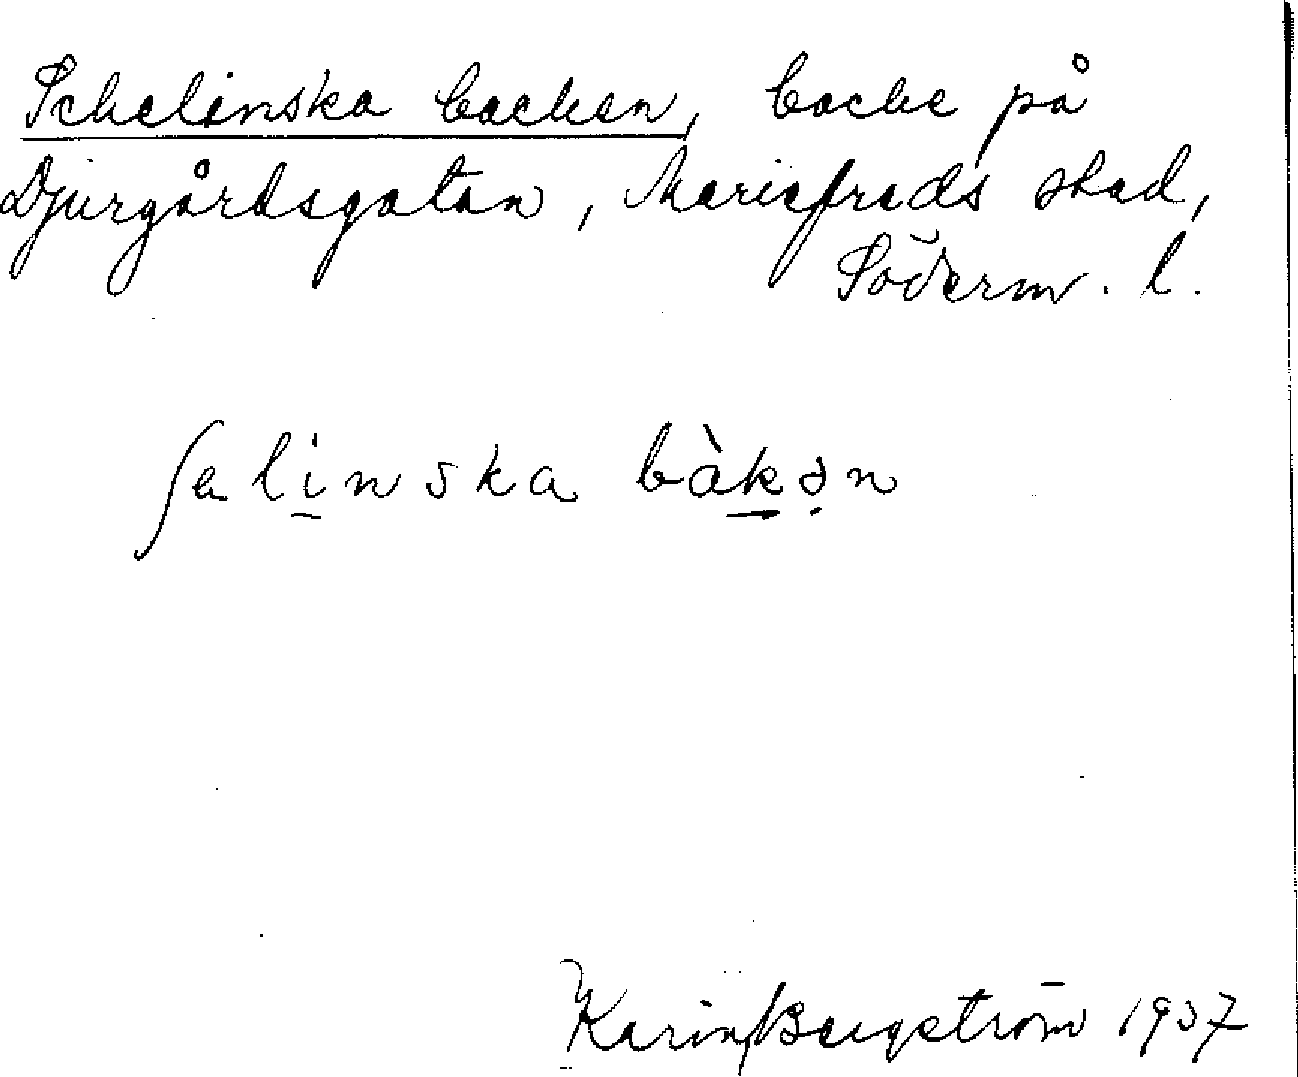 Schelinska backen, backe på
Djurgårdsgatan, Mariefreds stad,
Söderm. l.
ʃelinska bàkən
Karin Bergström 1937